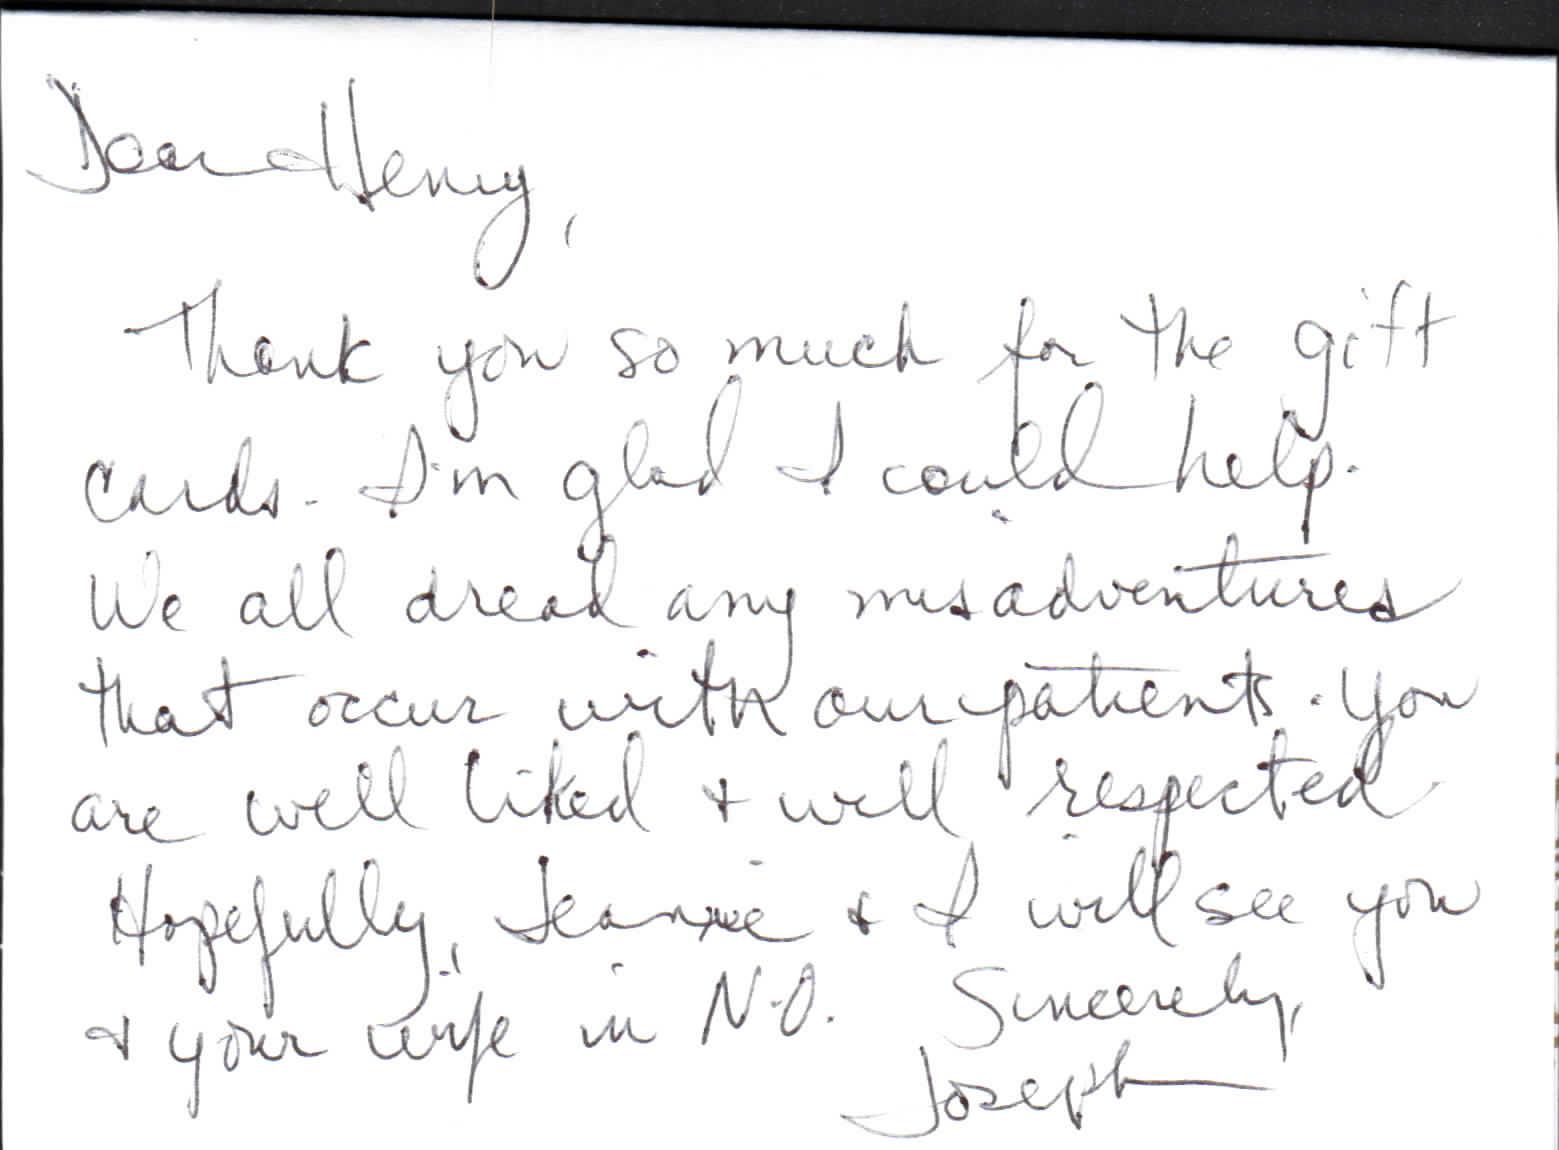 Dear Henry,
Thank you so much for the gift
cards. I'm glad I could help.
We all dread any misadventures
that occur with our patients. You
are well liked & well respected
Hopefully, Jeannie & I will see you
& your wife in N.O. Sincerely,
Joseph